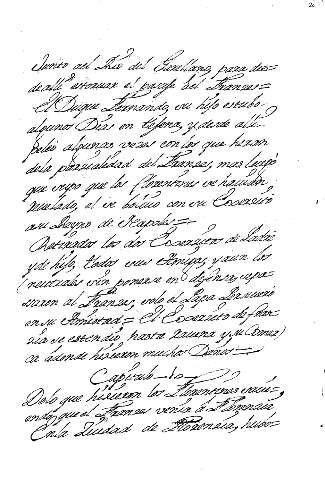 dentro del Rio del Serellano, para des-
de alli estorvar el passo del Frances=
El Duque Fernando, su hijo estubo
algunos Dias en Cesena, y desde alli
peleó algunas vezes con los que heran
de la parcialidad del Frances, mas luego
que supo que los Florentinos se havian
revelado, el se bolvió con su Exercito
a su Reyno de Napoles=
Retirados los dos Exercitos de Padre
y de hijo, todos sus Amigos, y aun los
neutrales sin ponerse en defensa, se pa-
saron al Frances, solo el Papa
en su Amistad= El Exercito de
se estendió hasta Ravena y
ca adonde hicieron muchos Daños=
Capitulo 10
De lo que hicieron los Florentinos savi-
endo, que el Frances venia á Florencia,
En la Ziudad de Florencia, huvo